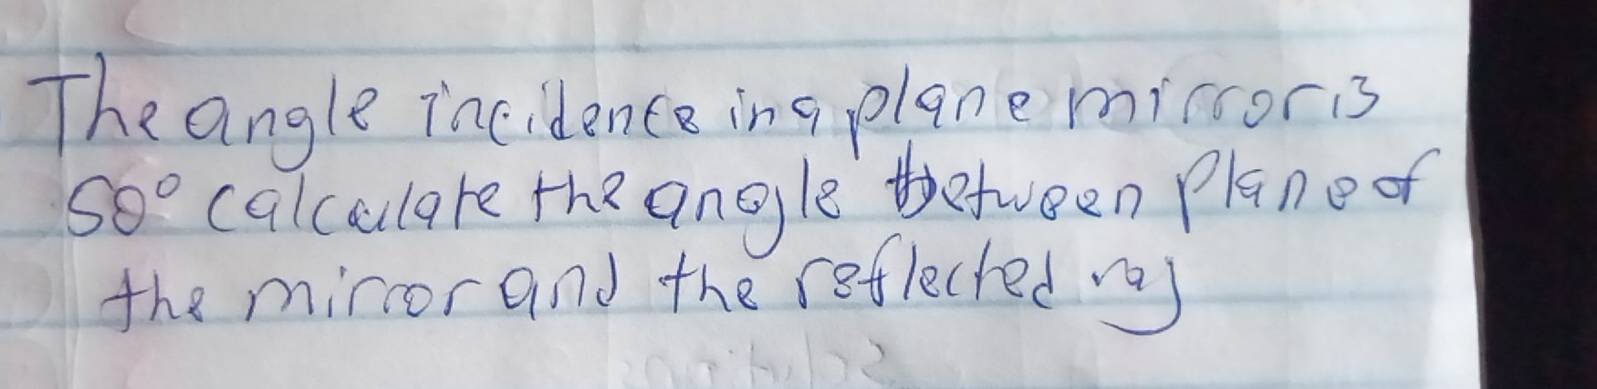 The angle incidence in a plane mirror is
50° calculate the angle between plane of
the mirror and the reflected ray